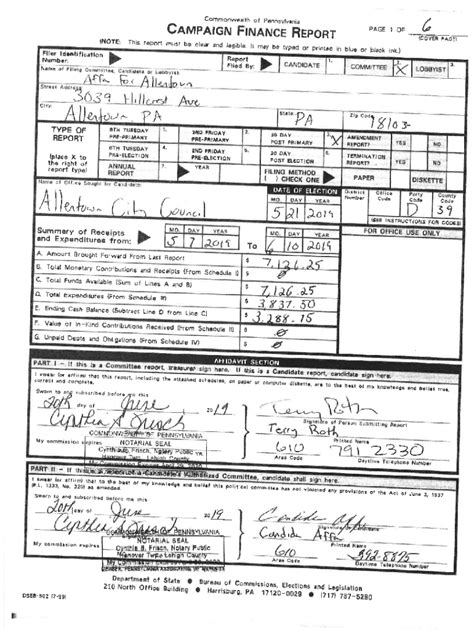 Commonwealth of Pennsylvania
CAMPAIGN FINANCE REPORT
PAGE 1 OF 6
(COVER PAGE)
(NOTE: This report must be clear and legible. It may be typed or printed in blue or black ink.)
Filer Identification Number:
Report Filed By: CANDIDATE 1. COMMITTEE 2. X LOBBYIST 3.
Name of Filing Committee, Candidate or Lobbyist
Affa For Allentown
Street Address
3039 Hillcrest Ave
City Allentown PA State PA Zip Code 18103
TYPE OF REPORT
(place X to the right of report type)
6TH TUESDAY PRE-PRIMARY 1. 2ND FRIDAY PRE-PRIMARY 2. 30 DAY POST PRIMARY 3. X AMENDMENT REPORT? YES NO
6TH TUESDAY PRE-ELECTION 4. 2ND FRIDAY PRE-ELECTION 5. 30 DAY POST ELECTION 6. TERMINATION REPORT? YES NO
ANNUAL REPORT 7. YEAR FILING METHOD ( ) CHECK ONE PAPER DISKETTE
Name of Office Sought by Candidate
Allentown City Council
DATE OF ELECTION
MO. DAY YEAR
5 21 2019
District Number Office Code Party Code County Code
D 39
(SEE INSTRUCTIONS FOR CODES)
Summary of Receipts and Expenditures from: MO. DAY YEAR 5 7 2019 To MO. DAY YEAR 6 10 2019
FOR OFFICE USE ONLY
A. Amount Brought Forward From Last Report $ 7,126.25
B. Total Monetary Contributions and Receipts (From Schedule I) $ 0
C. Total Funds Available (Sum of Lines A and B) $ 7,126.25
D. Total Expenditures (From Schedule III) $ 3,837.50
E. Ending Cash Balance (Subtract Line D from Line C) $ 3,288.75
F. Value of In-Kind Contributions Received (From Schedule II) $ 0
G. Unpaid Debts and Obligations (From Schedule IV) $ 0
AFFIDAVIT SECTION
PART I - If this is a Committee report, treasurer sign here. If this is a Candidate report, candidate sign here.
I swear (or affirm) that this report, including the attached schedules, on paper or computer diskette, are to the best of my knowledge and belief true, correct and complete.
Sworn to and subscribed before me this
20th day of June 2019
Terry Roth
Cynthia B Frisch
Signature of Person Submitting Report
COMMONWEALTH OF PENNSYLVANIA
Terry Roth
Printed Name
NOTARIAL SEAL
My commission expires
Cynthia B. Frisch, Notary Public
Hanover Twp., Lehigh County
610 791 2330
Area Code Daytime Telephone Number
PART II - If this is a report of a Candidate's Authorized Committee, candidate shall sign here.
I swear (or affirm) that to the best of my knowledge and belief this political committee has not violated any provisions of the Act of June 3, 1937 (P.L. 1333, No. 320) as amended.
Sworn to and subscribed before me this
20th day of June 2019
Cynthia B Frisch
Signature of Candidate
COMMONWEALTH OF PENNSYLVANIA
Candida Affa
Printed Name
NOTARIAL SEAL
My commission expires
Cynthia B. Frisch, Notary Public
Hanover Twp Lehigh County
610
Area Code Daytime Telephone Number
Department of State ● Bureau of Commissions, Elections and Legislation
210 North Office Building ● Harrisburg, PA 17120-0029 ● (717) 787-5280
DSEB-502 (7-99)